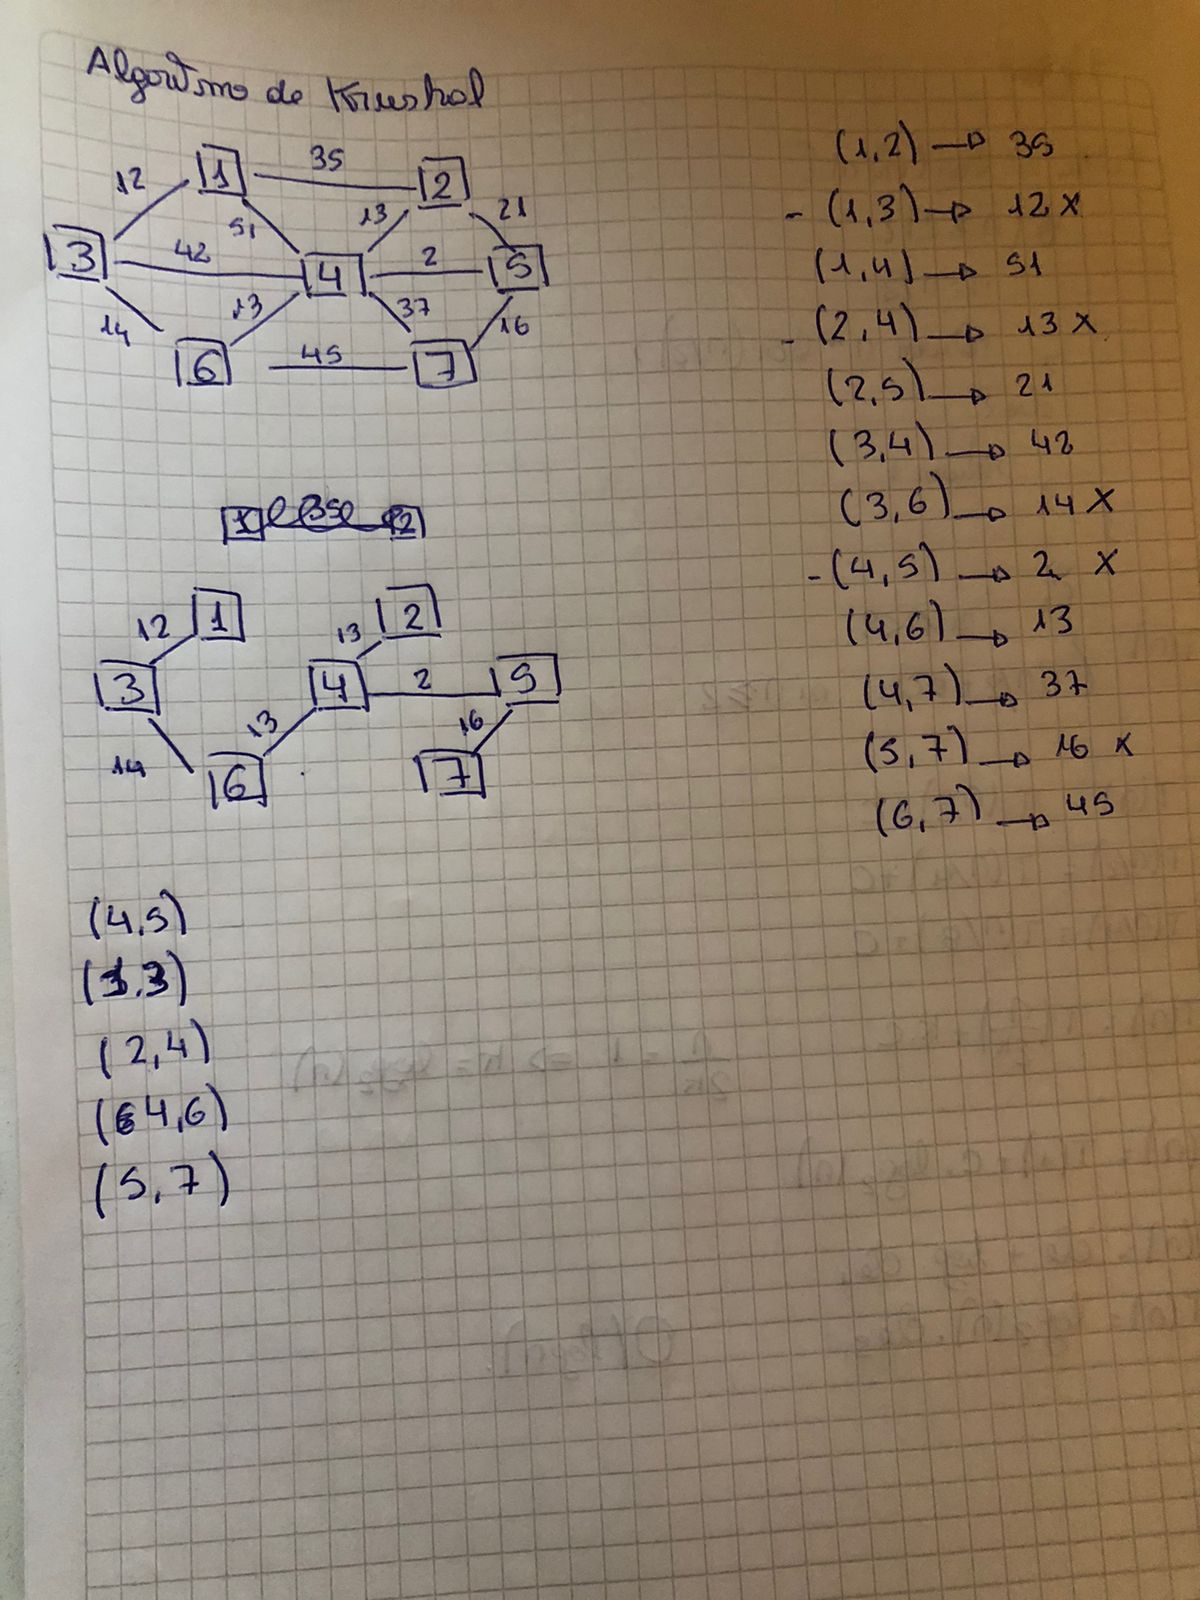 Algoritmo de Kruskal
12 1 35 2
51 13 21
3 42 4 2 5
14 13 37 16
6 45 7
1 35 2
12 1 13 2
3 4 2 5
14 13 16
6 7
(4,5)
(1,3)
(2,4)
(4,6)
(5,7)
(1,2) → 35
- (1,3) → 12 x
(1,4) → 51
- (2,4) → 13 x
(2,5) → 21
(3,4) → 42
(3,6) → 14 x
- (4,5) → 2 x
(4,6) → 13
(4,7) → 37
(5,7) → 16 x
(6,7) → 45